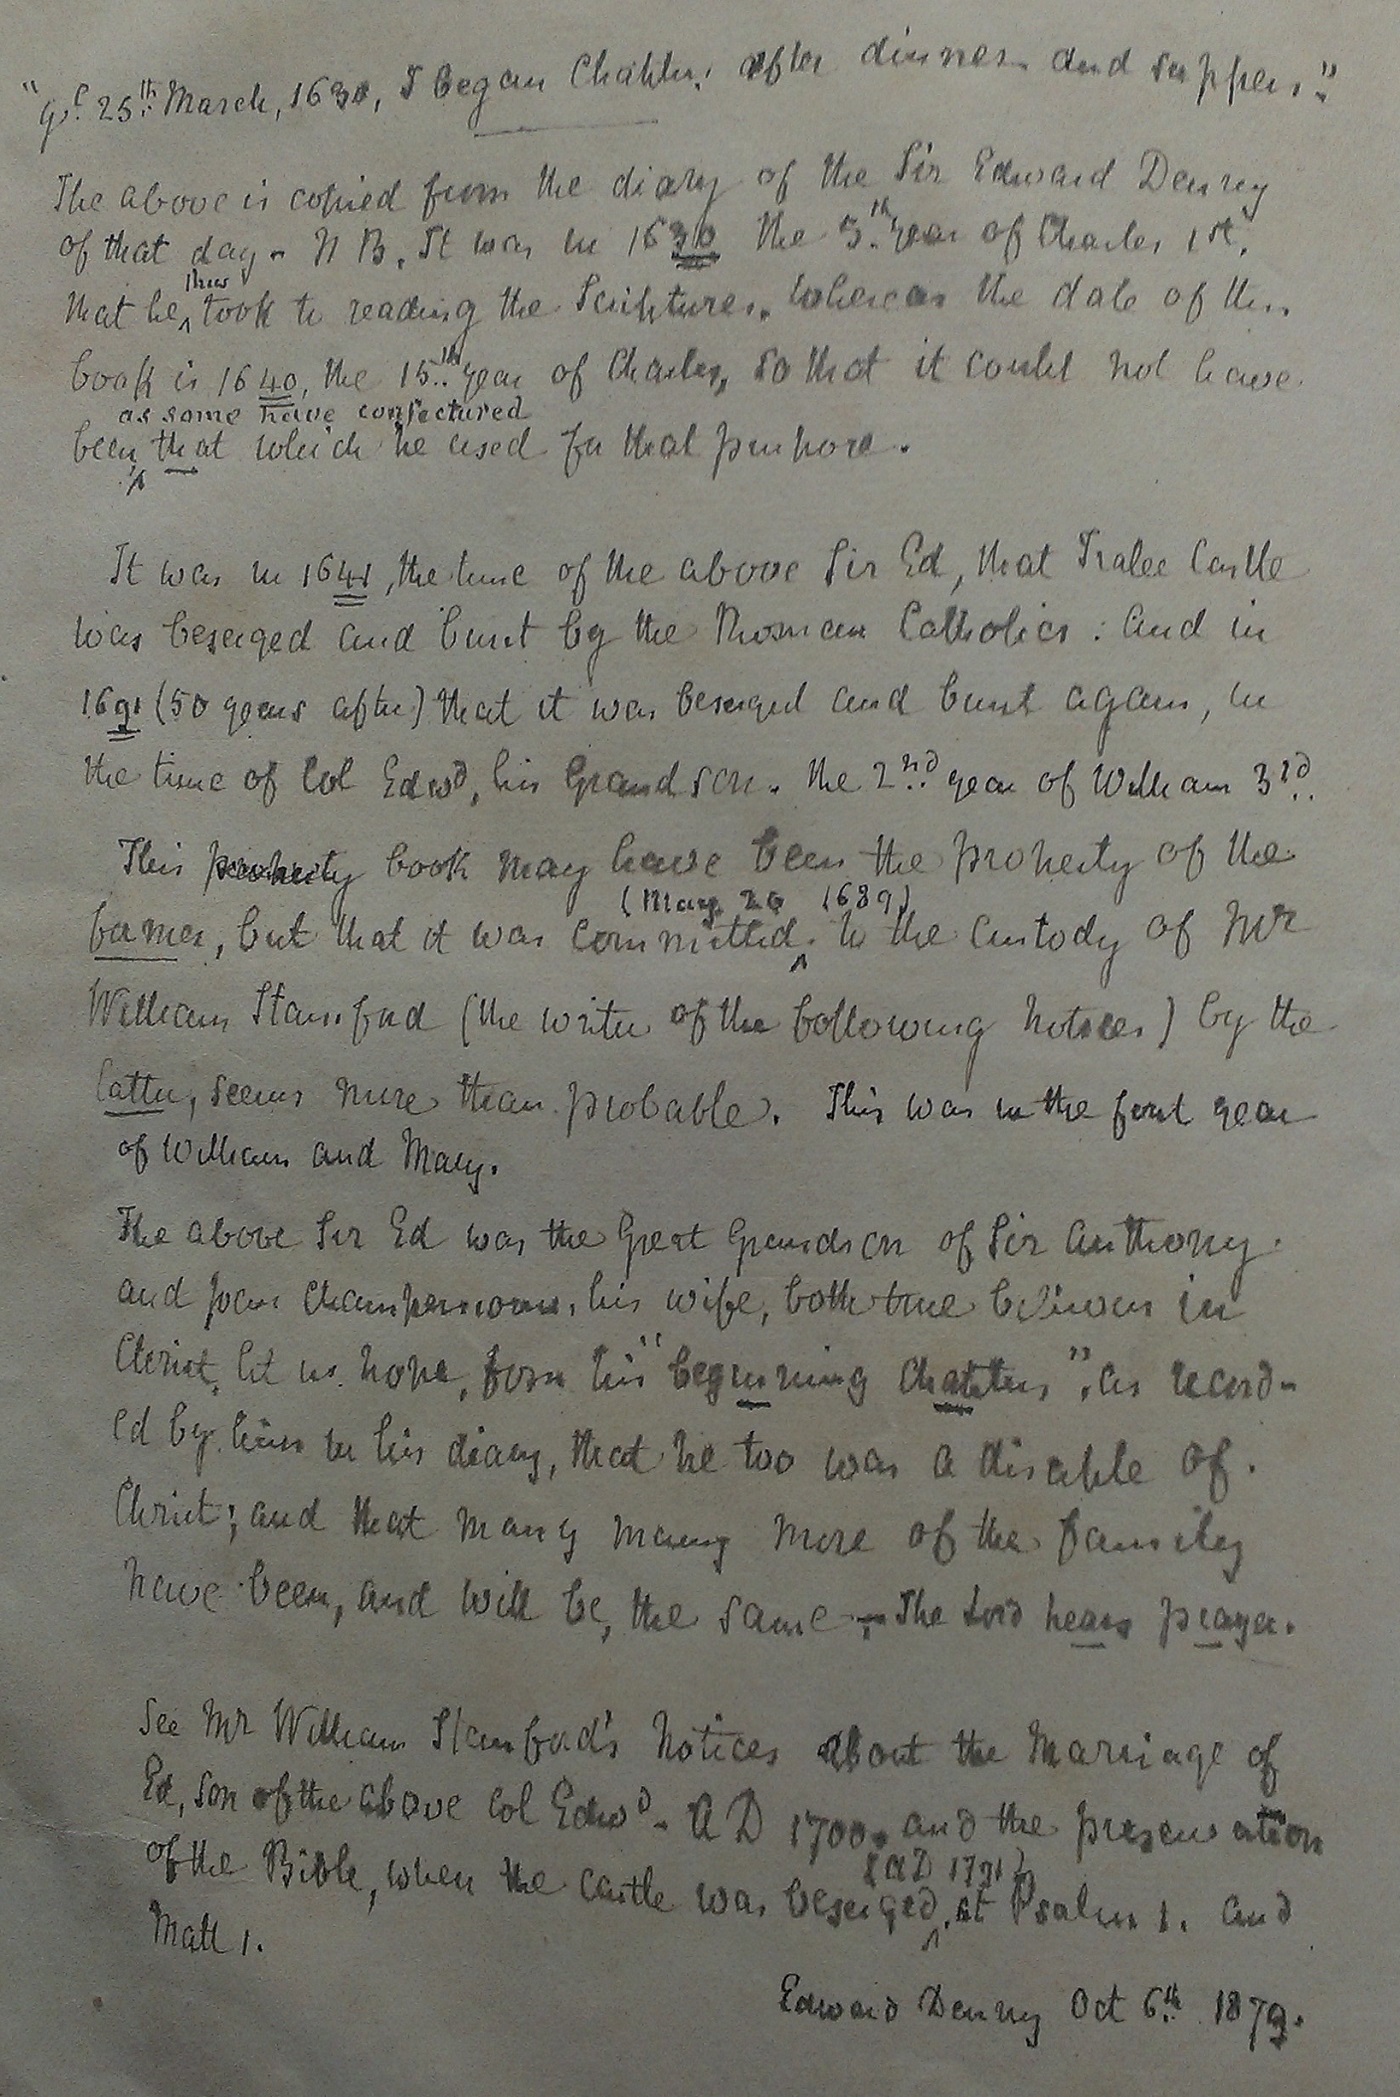 "ye 25th March, 1630, I began Chapters after dinner and supper."
The above is copied from the diary of the Sir Edward Denny
of that day - N B. It was in 1630 the 5th year of Charles 1st.
thus
that he ^ took to reading the Scriptures. Whereas the date of this
book is 1640, the 15th year of Charles, so that it could not have
as some have conjectured
been ^ that which he used for that purpose.
It was in 1641, the time of the above Sir Ed, that Tralee Castle
was beseiged and burnt by the Roman Catholics: and in
1691 (50 years after) that it was beseiged and burnt again, in
the time of Col Edwd, his Grandson. the 2nd year of William 3rd.
This property book may have been the property of the
(May 20 1689)
former, but that it was committed ^ to the custody of Mr
William Stanford (the writer of the following notices) by the
latter, seems more than probable. This was in the first year
of William and Mary.
The above Sir Ed was the Great Grandson of Sir Anthony
and Joan Champernown, his wife, both true believers in
Christ, let us hope, from his "beginning Chapters", as record-
ed by him in his diary, that he too was a disciple of
Christ; and that many many more of the family
have been, and will be, the same - The Lord hears prayer.
See Mr William Stanford's Notices about the Marriage of
Ed, son of the above Col Edwd - A D 1700. and the preservation
(AD 1791)
of the Bible, when the castle was beseiged ^ at Psalm 1. and
Matt 1.
Edward Denny Oct 6th 1879.